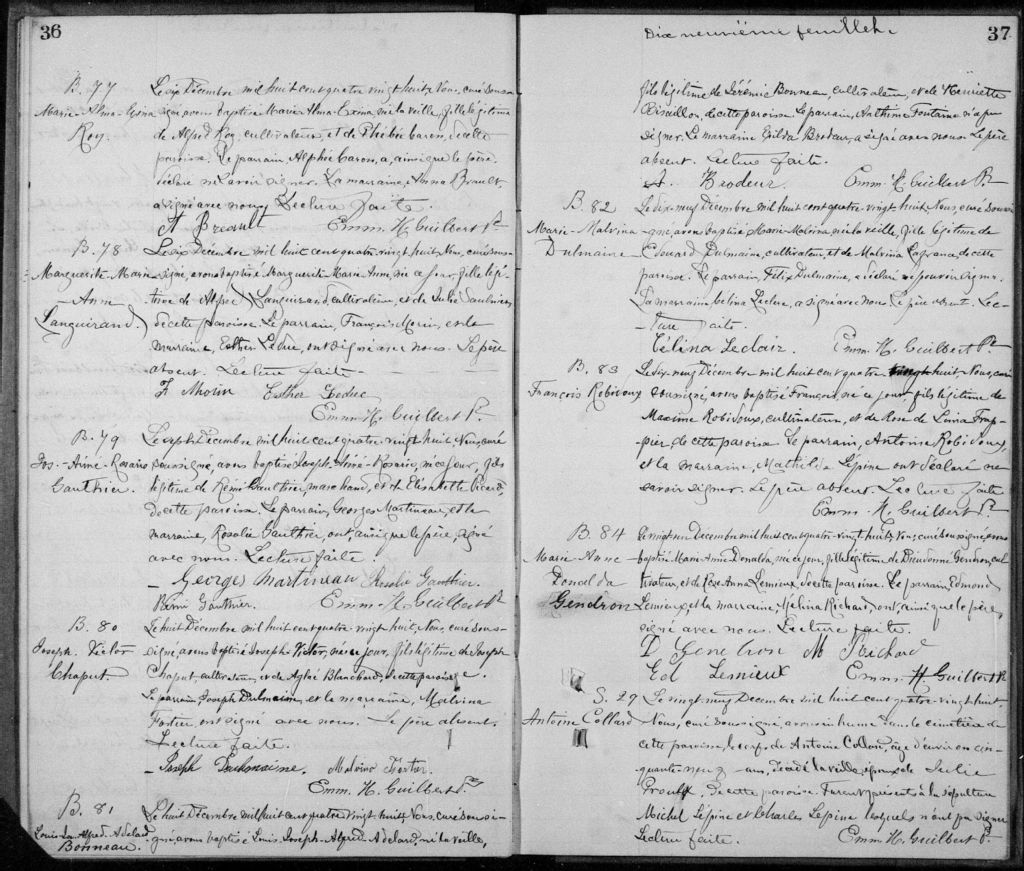 36
B. 77
Marie-Alma-Exina
Roy.
Le six Décembre mil huit cent quatre vingt huit, Nous, curé sous-
signé, avons baptisé Marie-Alma-Exina, née la veille, fille légitime
de Alfred Roy, cultivateur, et de Phébée Caron, de cette
paroisse. Le parrain, Alphée Caron, a, ainsi que le père,
déclaré ne savoir signer. La marraine, Anna Breault,
a signé avec nous. Lecture faite.
A Breault Emm. H. Guilbert Ptr
B. 78
Marguerite-Marie
- Anne
Languirand.
Le six Décembre mil huit cent quatre vingt huit, Nous, curé sous-
signé, avons baptisé Marguerite Marie Anne, née ce jour, fille légi-
time de Alfred Languirand, cultivateur, et de Julie Saulnier,
de cette paroisse. Le parrain, François Morin, et la
marraine, Esther Leduc, ont signé avec nous. Le père
absent. Lecture faite -
F Morin Esther Leduc
Emm. H. Guilbert Ptr
B. 79
Jos.-Aimé-Rosario
Gauthier.
Le sept Décembre mil huit cent quatre vingt huit Nous, curé
soussigné, avons baptisé Joseph-Aimé-Rosario, né ce jour, fils
légitime de Rémi Gauthier, marchand, et de Elisabeth Picard,
de cette paroisse. Le parrain, Georges Martineau, et la
marraine, Rosalie Gauthier, ont, ainsi que le père, signé
avec nous. Lecture faite.
- Georges Martineau Rosalie Gauthier.
Rémi Gauthier. Emm. H. Guilbert Ptr
B. 80
Joseph. Victor
Chaput.
Le huit Décembre mil huit cent quatre-vingt huit, Nous, curé sous-
signé, avons baptisé Joseph-Victor, né ce jour, fils légitime de Joseph
Chaput, cultivateur, et de Aglaé Blanchard, de cette paroisse.
Le parrain Joseph Dulmaine, et la marraine, Malvina
Fortier, ont signé avec nous. Le père absent.
Lecture faite.
- Joseph Dulmaine. Malvina Fortier.
Emm. H. Guilbert Ptr
B. 81
Louis-Jos-Alfred-Adelard
Bonneau.
Le huit Décembre mil huit cent quatre vingt huit, Nous, curé soussi-
gné, avons baptisé Louis-Joseph-Alfred-Adelard, né la veille,
Dix neuvième feuillet.
37
fils légitime de Jérémie Bonneau, cultivateur, et de Henriette
de cette paroisse. Le parrain, Anthime Fontaine n'a pu
signer. La marraine Exilda Brodeur, a signé avec nous. Le père
absent. Lecture faite.
A. Brodeur. Emm. H. Guilbert Ptr
B. 82
Marie-Malvina
Dulmaine
Le dix-neuf Décembre mil huit cent quatre-vingt huit, Nous, curé soussi-
gné, avons baptisé Marie-Malvina, née la veille, fille légitime de
Edouard Dulmaine, cultivateur, et de Malvina Lafrance, de cette
paroisse. Le parrain, Félix Dulmaine, a déclaré ne pouvoir signer.
La marraine, Célina Leclair, a signé avec nous. Le père absent. Lec-
-ture faite.
Célina Leclair. Emm. H. Guilbert Ptr
B. 83
François Robidoux
Le dix-neuf Décembre mil huit cent quatre vingt huit Nous, curé
soussigné, avons baptisé François, né ce jour, fils légitime de
Maxime Robidoux, cultivateur, et de Rose de Lima Frap-
pier, de cette paroisse. Le parrain, Antoine Robidoux,
et la marraine, Mathilde Lépine ont déclaré ne
savoir signer. Le père absent. Lecture faite
Emm. H. Guilbert Ptr
B. 84
Marie-Anne-
Donalda
Gendron
Le vingt-un Décembre mil huit cent quatre-vingt huit, Nous, curé soussigné, avons
baptisé Marie-Anne-Donalda, née ce jour, fille légitime de Dieudonné Gendron, cul-
tivateur, et de Rose Anna Lemieux, de cette paroisse. Le parrain, Edmond
Lemieux, et la marraine, Mélina Richard, ont, ainsi que le père,
signé avec nous. Lecture faite.
D Gendron M Richard
Ed Lemieux Emm. H. Guilbert Ptr
S. 29
Antoine Collard
Le vingt-neuf Décembre mil huit cent quatre-vingt huit
Nous, curé soussigné, avons inhumé dans le cimetière de
cette paroisse, le corps de Antoine Collard, âgé d'environ cin-
quante-neuf ans, décédé la veille, époux de Julie
Proulx, de cette paroisse. Furent présents à la sépulture
Michel Lépine et Charles Lépine lesquels n'ont pu signer
Lecture faite. Emm. H. Guilbert Ptr